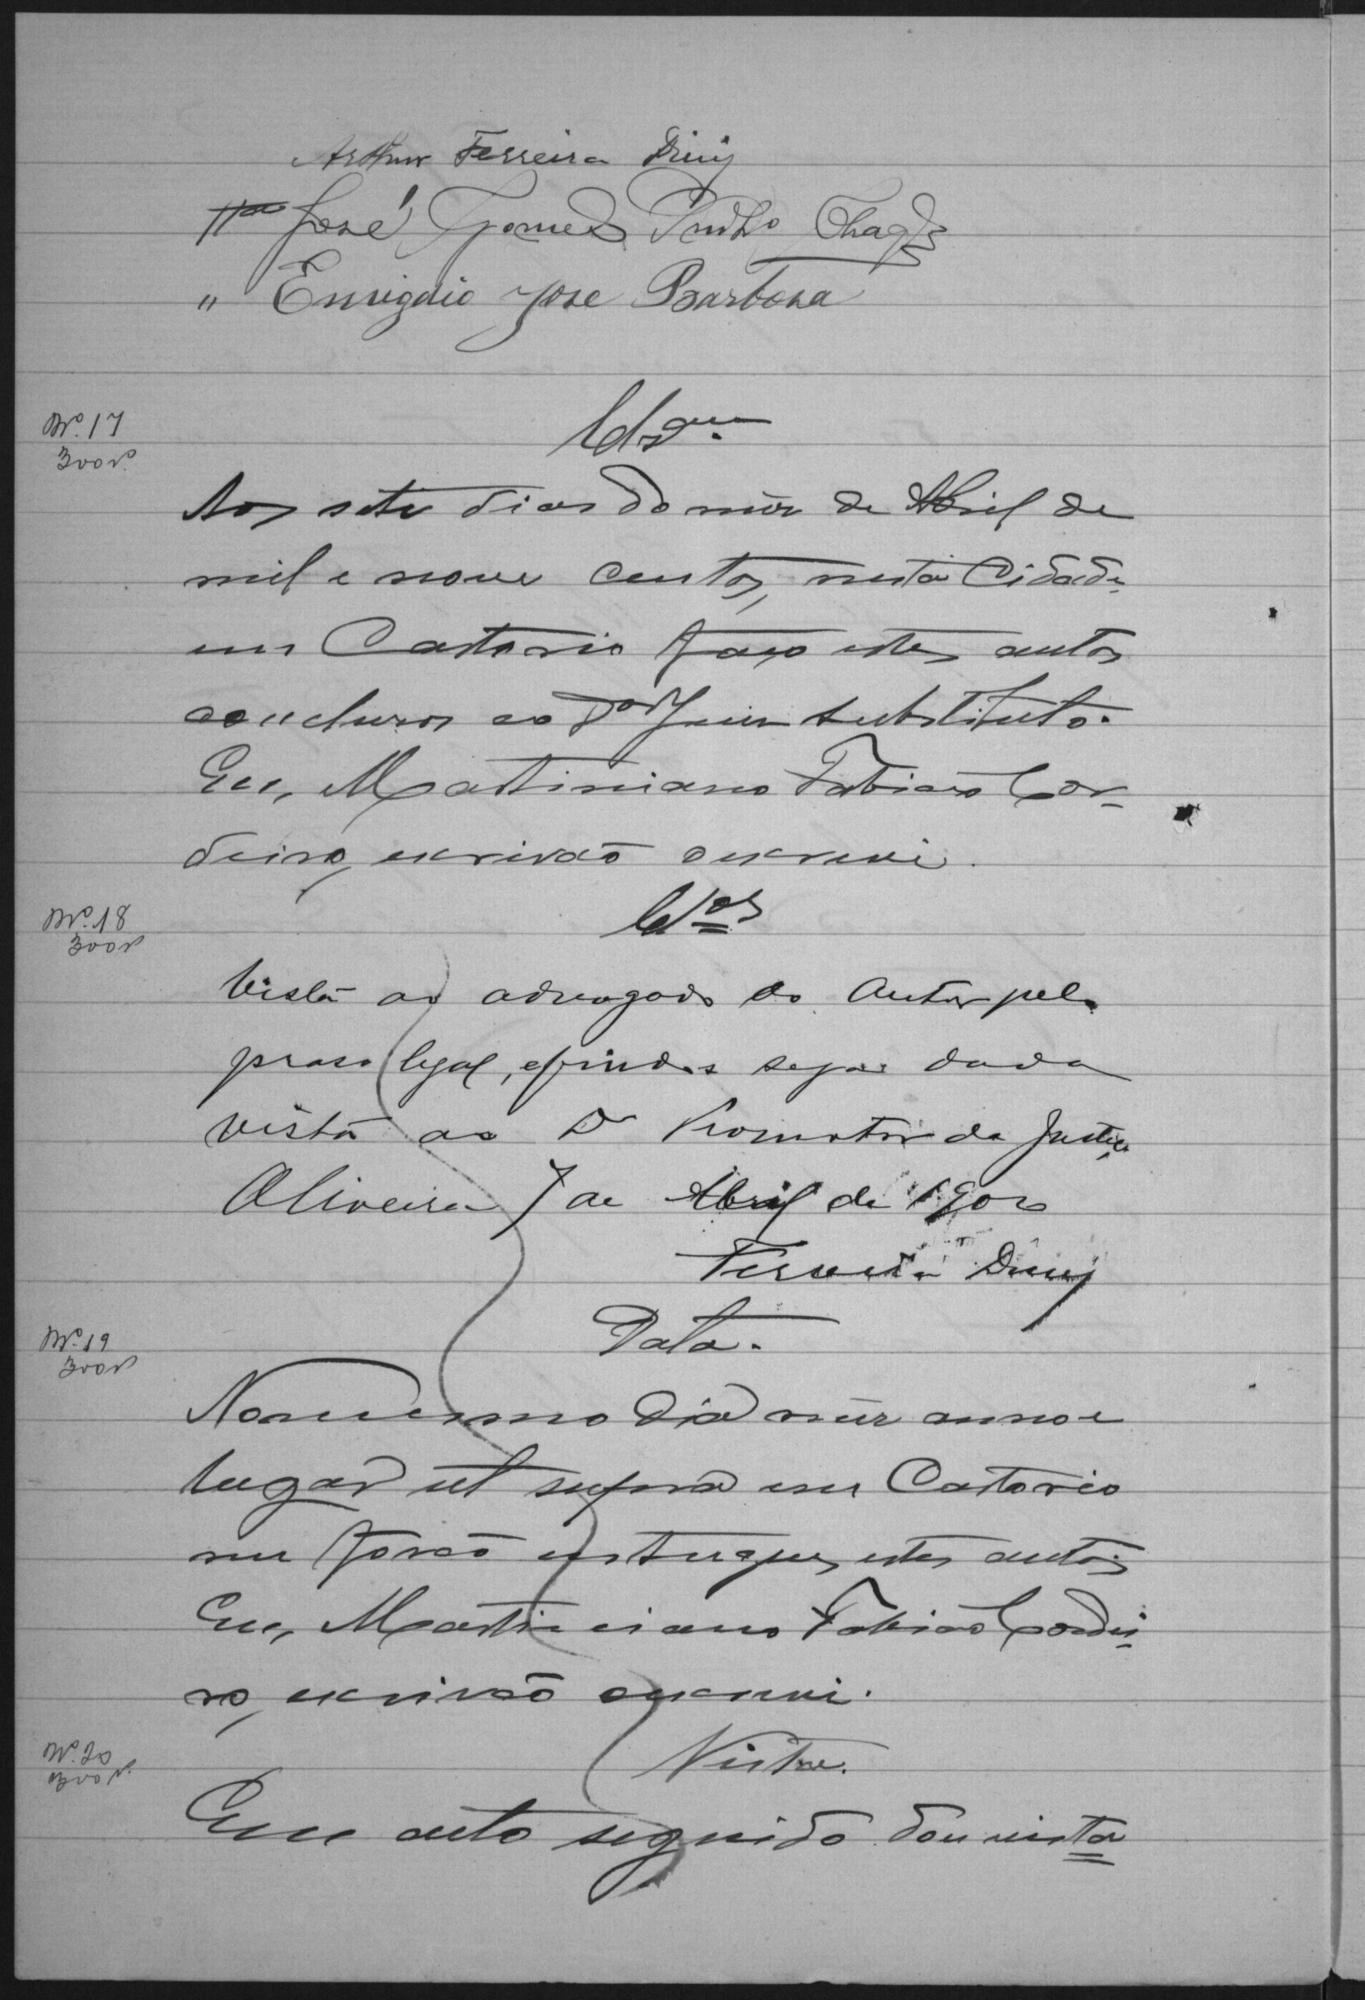 Arthur Ferreira Diniz
Tta José Gomes Pinto Chagas
" Emigdio Jose Barbosa
Nº 17
300 rs.
Clsam.
Aos sete dias do mez de Abril de
mil e nove centos, nesta Cidade
em Cartorio faço estes autos
conclusos ao Dor Juiz substituto.
Eu, Martiniano Fabiano Cor-
deiro, escrivão o escrevi.
Nº 18
300 rs
Clsos
Vista ao advogado do Autor pelo
praso legal, e findos seja dada
vista ao Dr Promotor da Justiça
Oliveira 7 de Abril de 1900
Ferreira Diniz
Nº 19
300 rs
Data.
No mesmo dia mez anno e
lugar ut supra em Cartorio
me forão entregues estes autos
Eu, Martiniano Fabiano Cordei-
ro, escrivão o escrevi.
Nº 20
300 rs.
Vista.
Em acto seguido dou vista